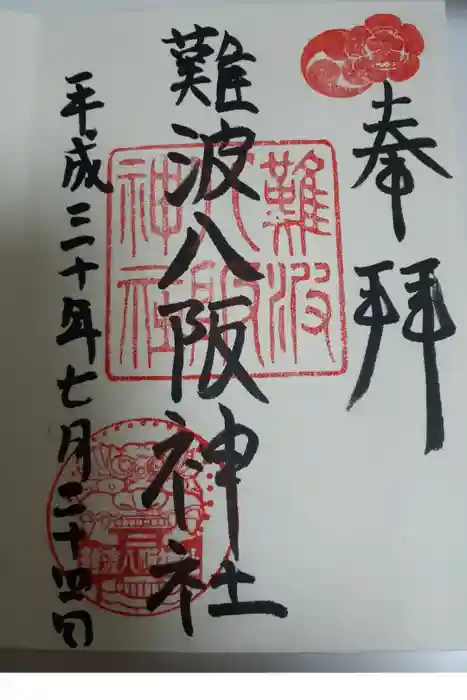 奉拝
難波八阪神社
難波八阪神社
平成三十年七月二十四日